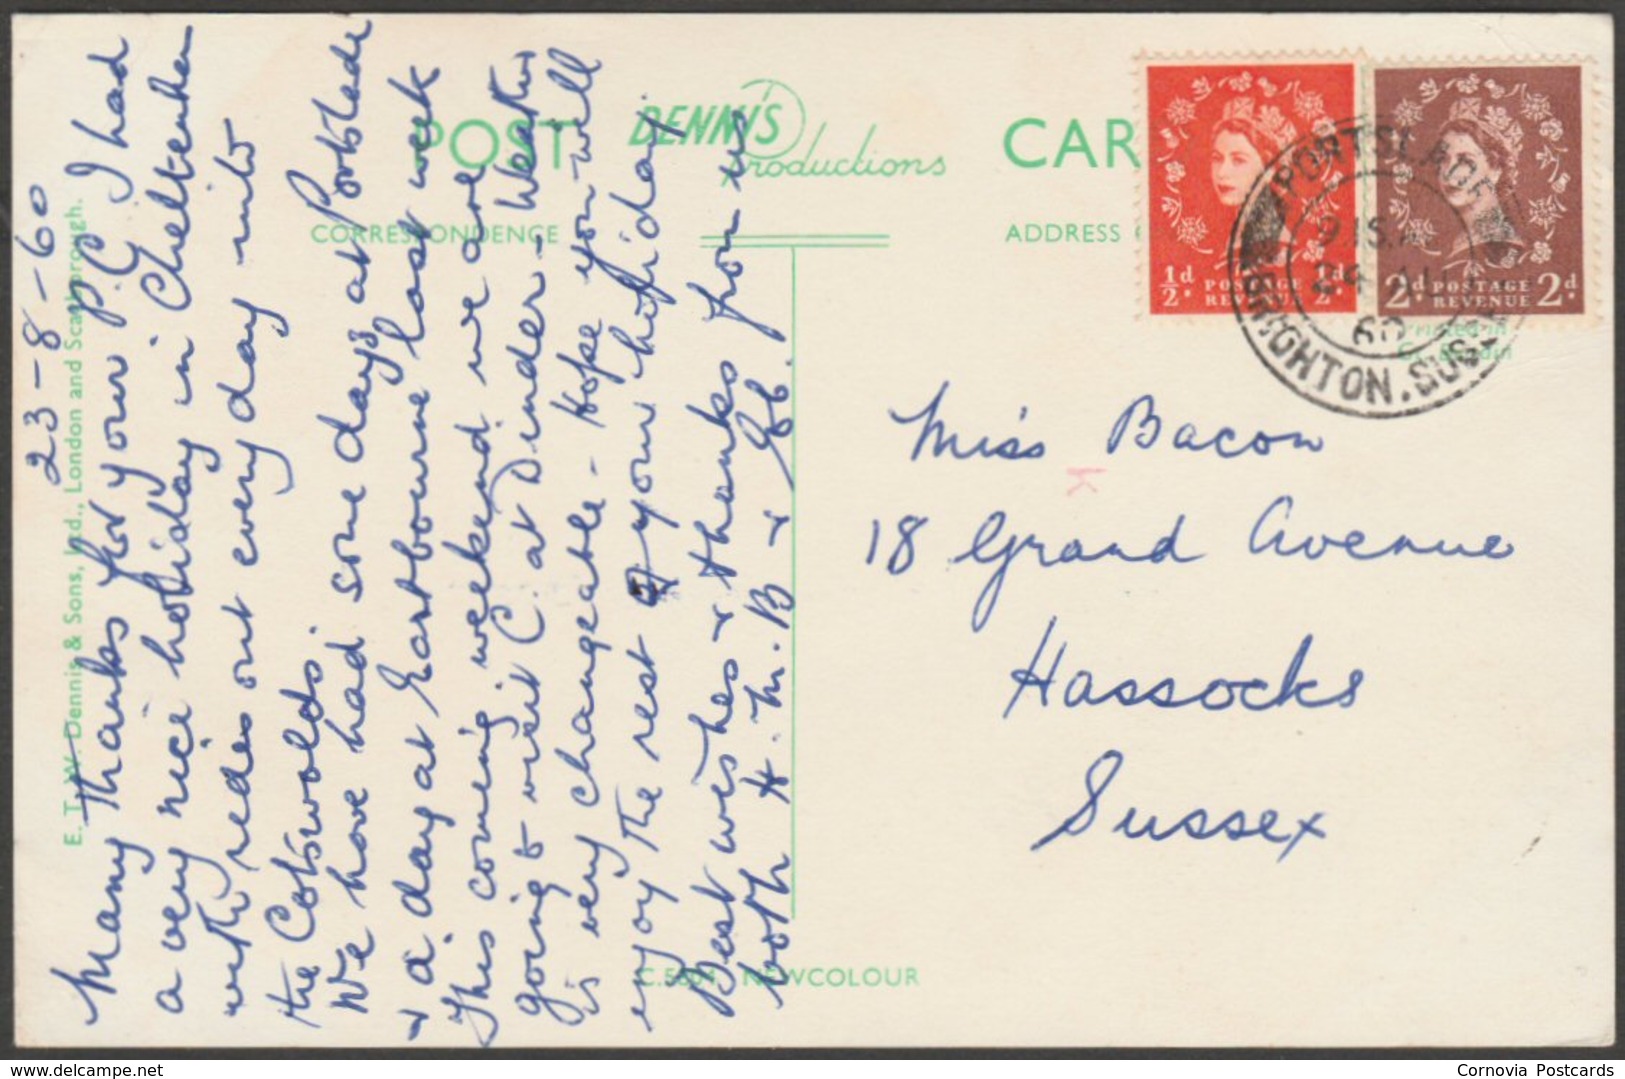 23-8-60
Many Thanks for your P.C. I had
a very nice holiday in Cheltenham
with rides out every day into
the Cotswolds.
We have had some days at Portslade
+ a day at Eastbourne last week
This coming weekend we are
going to visit C. at Dinder - Weather
is very changeable - Hope you will
enjoy the rest of your holiday
Best wishes + thanks from us
both H. M. B + Gb.
E. T. W. Dennis & Sons, Ltd., London and Scarborough.
POST CAR
DENNIS
Productions
CORRESPONDENCE
ADDRESS
Printed in
C. NEWCOLOUR
½d POSTAGE REVENUE ½d
2d POSTAGE REVENUE 2d
PORTSLADE
24 AU
60
BRIGHTON. SUSSEX
Miss Bacon
K
18 Grand Avenue
Hassocks
Sussex
Cornovia Postcards